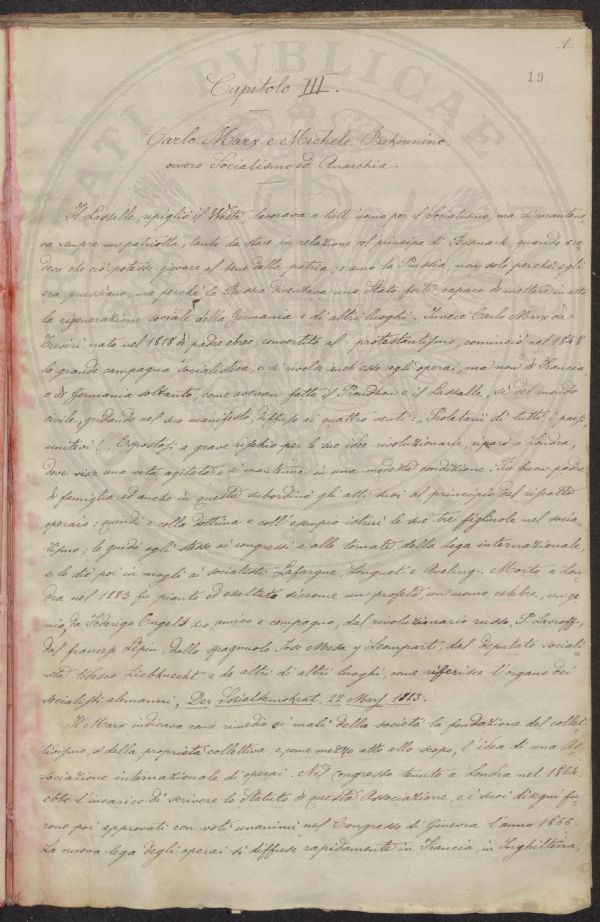 1
19
Capitolo III.
Carlo Marx e Michele Bakounine
ovvero Socialismo ed Anarchia
Il Lassalle, ripigliò il Nosti, lavorava a tutt'uomo per il Socialismo, ma si mantene-
va sempre un patriotta, tanto da stare in relazione col principe di Bismark, quando cre-
deva che ciò potesse giovare al bene della patria, e amò la Prussia, non solo perchè egli
era prussiano, ma perchè la Prussia diventava uno Stato forte capace di mettere in atto
la rigenerazione sociale della Germania e di altri luoghi. Invece Carlo Marx da
Treviri nato nel 1818 di padre ebreo, convertito al protestantismo, cominciò nel 1848
la grande campagna socialistica, e si rivolse anch'esso agli operai, ma non di Francia
o di Germania soltanto, come avevan fatto il Proudhon e il Lassalle, sì del mondo
civile, gridando nel suo manifesto, diffuso ai quattro venti: „Proletarii di tutti i paesi,
unitevi!„ Espostosi a grave rischio per le sue idee rivoluzionarie, riparò a Londra,
dove visse una vita agitata e si mantenne in una modesta condizione. Fu buon padre
di famiglia, ed anche in questa subordinò gli atti suoi al principio del riscatto
operaio: quindi e colla dottrina e coll'esempio istruì le sue tre figliuole nel socia-
lismo, le guidò egli stesso ai congressi e alle tornate della Lega internazionale,
e le diè poi in mogli ai socialisti Lafargue, Longuet e Aveling. Morto a Lon-
dra nel 1883 fu pianto ed esaltato siccome un profeta, un uomo celebre, un ge-
nio, da Federigo Engels suo amico e compagno, dal rivoluzionario russo, P. Lavroff,
dal francese Lépin, dallo spagnuolo Jose Mesa y Leompart, dal deputato sociali-
sta tedesco Liebknecht e da altri di altri luoghi, come riferisce l'organo dei
socialisti alemanni, Der Sozialdemokrat, 22 März 1883.
Il Marx indicava come rimedio ai mali della società la fondazione del collet-
tivismo, o della proprietà collettiva, e, come mezzo atto allo scopo, l'idea di una As-
sociazione internazionale di operai. Nel congresso tenuto a Londra nel 1864
ebbe l'incarico di scrivere lo Statuto di questa Associazione, e i suoi disegni fu-
rono poi approvati con voti unanimi nel Congresso di Ginevra l'anno 1866.
La nuova lega degli operai si diffuse rapidamente in Francia, in Inghilterra,